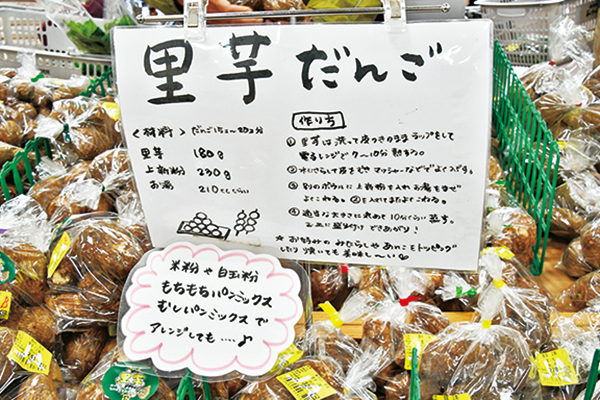 里芋だんご
<材料> だんご15コ〜20コ分
里芋 180g
上新粉 230g
お湯 210ccくらい
作り方
① 里芋は洗って皮つきのままラップをして
電子レンジで7〜10分熱する。
② 水にさらして皮をむき マッシャーなどでよくつぶす。
③ 別のボウルに上新粉を入れお湯をまぜ
よくこねる。②を入れてまたよくこねる。
④ 適当な大きさに丸めて10分くらい蒸す。
★ お好みの みたらしや あんこをトッピング
したり 焼いても 美味し〜い♡
米粉や白玉粉
もちもちパンミックス
むしパンミックスで
アレンジしても・・・・♪